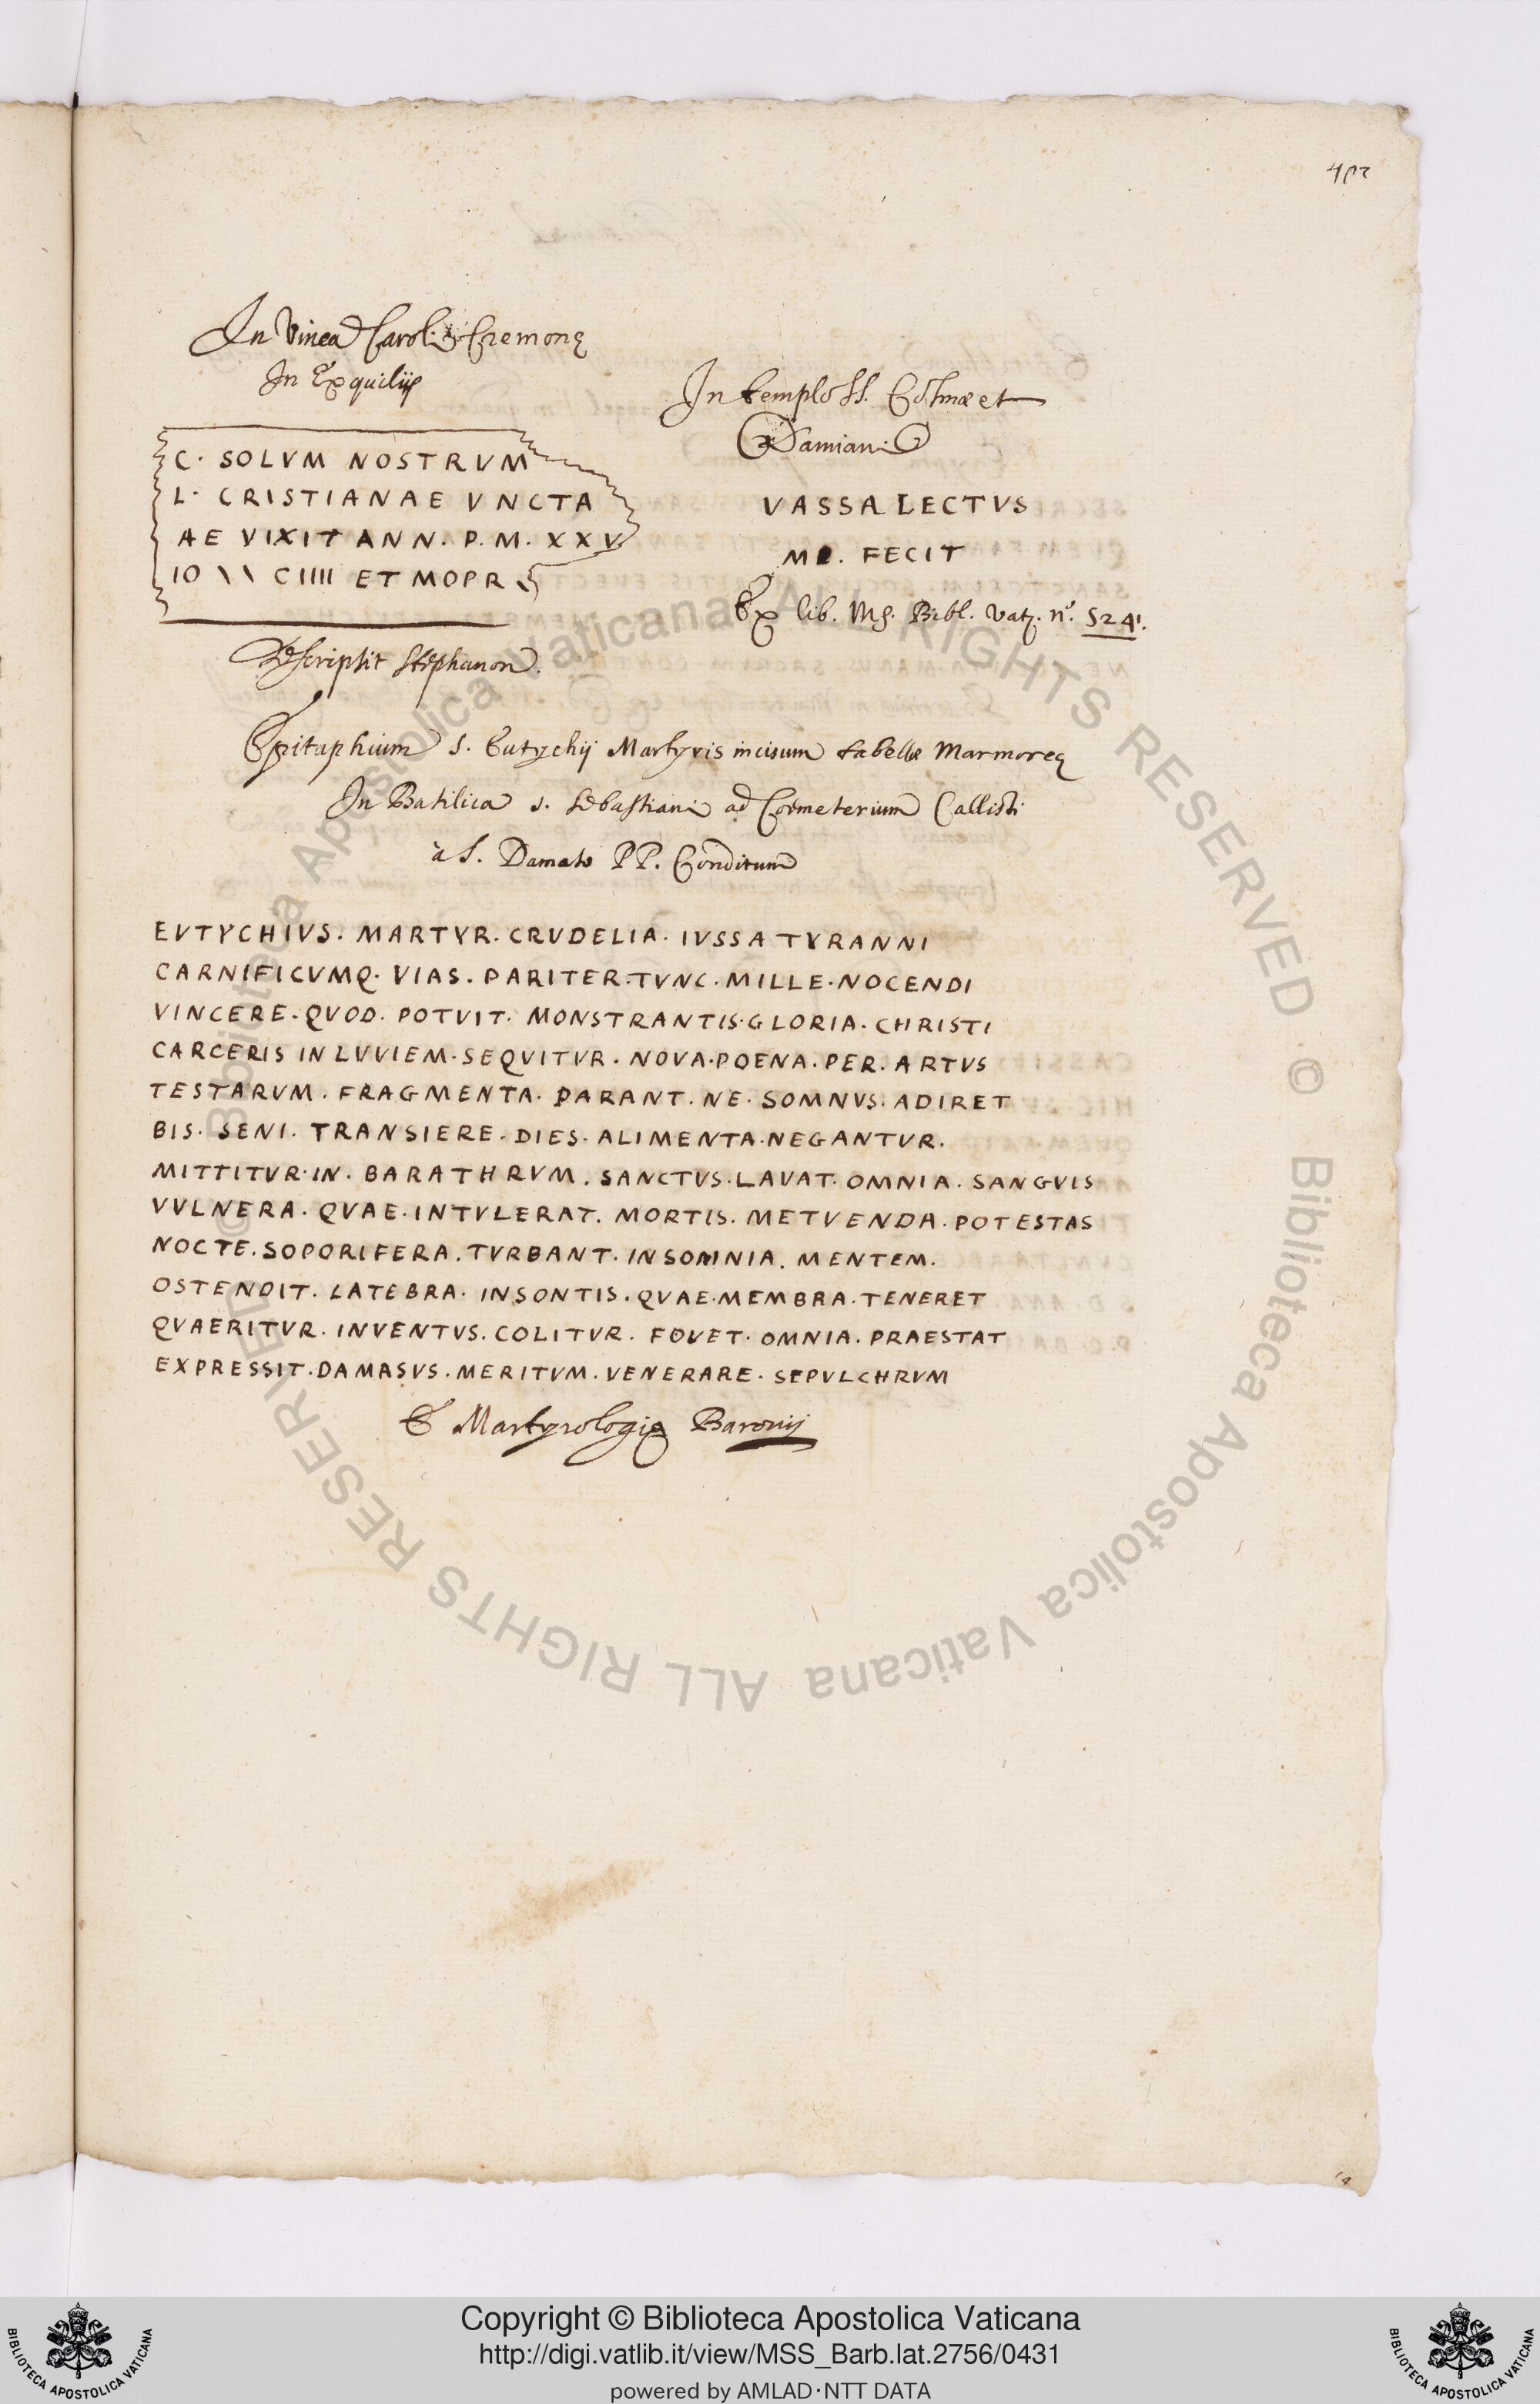 In Vinea Caroli Cremonę
In Exquilijs
C. SOLVM NOSTRVM
L. CRISTIANAE VNCTA
AE VIXIT ANN. P. M. XXV
IO \ \ CIIII ET MOPR
Descripsit Stephanon.
In templo SS. Cosmæ et
Damiani
VASSALECTVS
ME. FECIT
Ex lib. Ms. Bibl. Vat. n.º 5241.
Epitaphium S. Eutychij Martyris incisum tabellæ Marmoreę
In Basilica S. Sebastiani ad Coemeterium Callisti
à S. Damaso PP. Conditum
EVTYCHIVS. MARTYR. CRVDELIA. IVSSA TYRANNI
CARNIFICVMQ. VIAS. PARITER. TVNC. MILLE. NOCENDI
VINCERE. QVOD. POTVIT. MONSTRANTIS. GLORIA. CHRISTI
CARCERIS IN LVVIEM. SEQVITVR. NOVA. POENA. PER. ARTVS
TESTARVM. FRAGMENTA. PARANT. NE. SOMNVS. ADIRET
BIS. SENI. TRANSIERE. DIES. ALIMENTA. NEGANTVR.
MITTITVR. IN. BARATHRVM. SANCTVS. LAVAT. OMNIA. SANGVIS
VVLNERA. QVAE. INTVLERAT. MORTIS. METVENDA. POTESTAS
NOCTE. SOPORIFERA. TVRBANT. INSOMNIA. MENTEM.
OSTENDIT. LATEBRA. INSONTIS. QVAE. MEMBRA. TENERET
QVAERITVR. INVENTVS. COLITVR. FOVET. OMNIA. PRAESTAT
EXPRESSIT. DAMASVS. MERITVM. VENERARE. SEPVLCHRVM
E Martyrologio Baronij
© Biblioteca Apostolica Vaticana ALL RIGHTS RESERVED © Biblioteca Apostolica Vaticana ALL RIGHTS RESERVED
Copyright © Biblioteca Apostolica Vaticana
http://digi.vatlib.it/view/MSS_Barb.lat.2756/0431
powered by AMLAD·NTT DATA
BIBLIOTECA APOSTOLICA VATICANA
BIBLIOTECA APOSTOLICA VATICANA